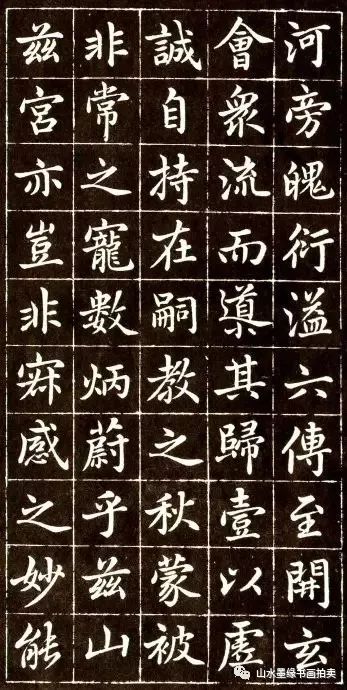 河旁魄衍溢六傳至開玄
會衆流而導其歸壹以虛
誠自持在嗣教之秋蒙被
非常之寵數炳蔚乎茲山
茲宮亦豈非冥感之妙能
山水墨缘书画拍卖